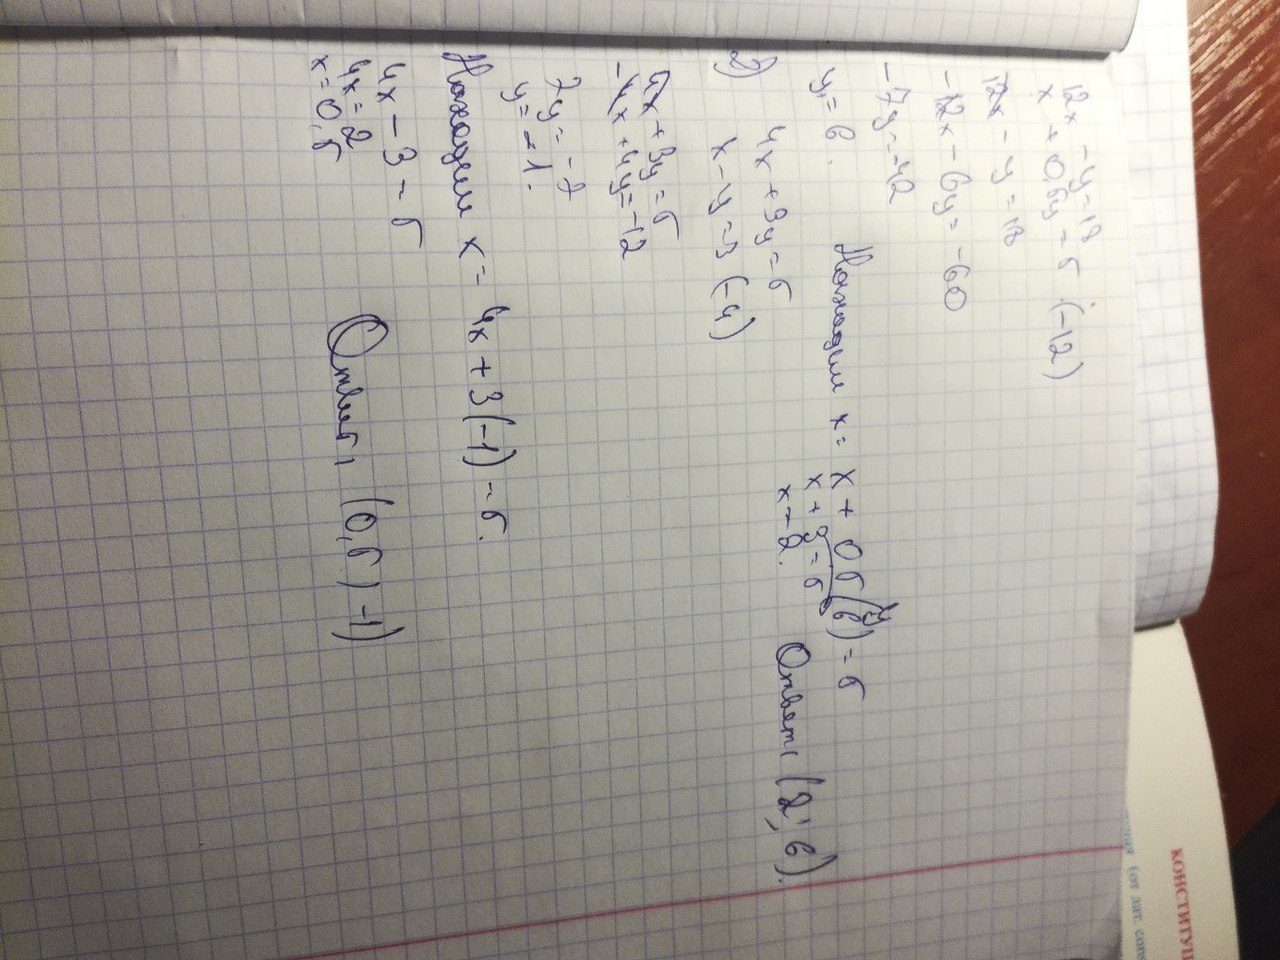 12x - y = 18
x + 0,5y = 5 · (-12)
12x - y = 18
-12x - 6y = -60
-7y = -42
y = 6.
Находим x = x + 0 5 (6) = 5
x + 3 = 5
x = 2.
Ответ: (2; 6).
2) 4x + 3y = 5
x - y = 3 (-4)
4x + 3y = 5
-4x + 4y = -12
7y = -7
y = -1.
Находим x = 4x + 3(-1) = 5.
4x - 3 = 5
4x = 2
x = 0,5
Ответ: (0,5; -1)
КОНСТИТУЦ